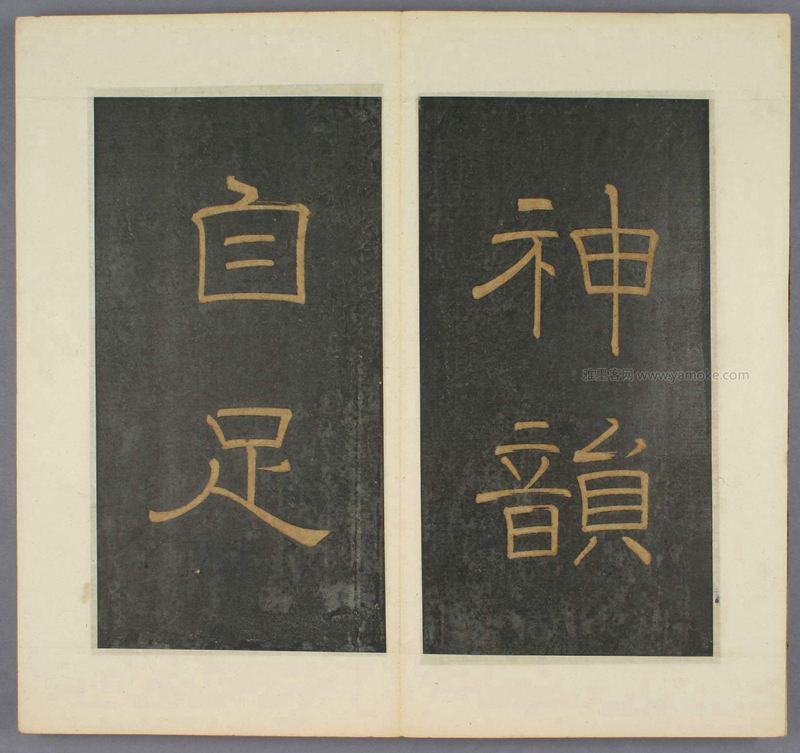 神韻
自足
雅墨客网 www.yamoke.com